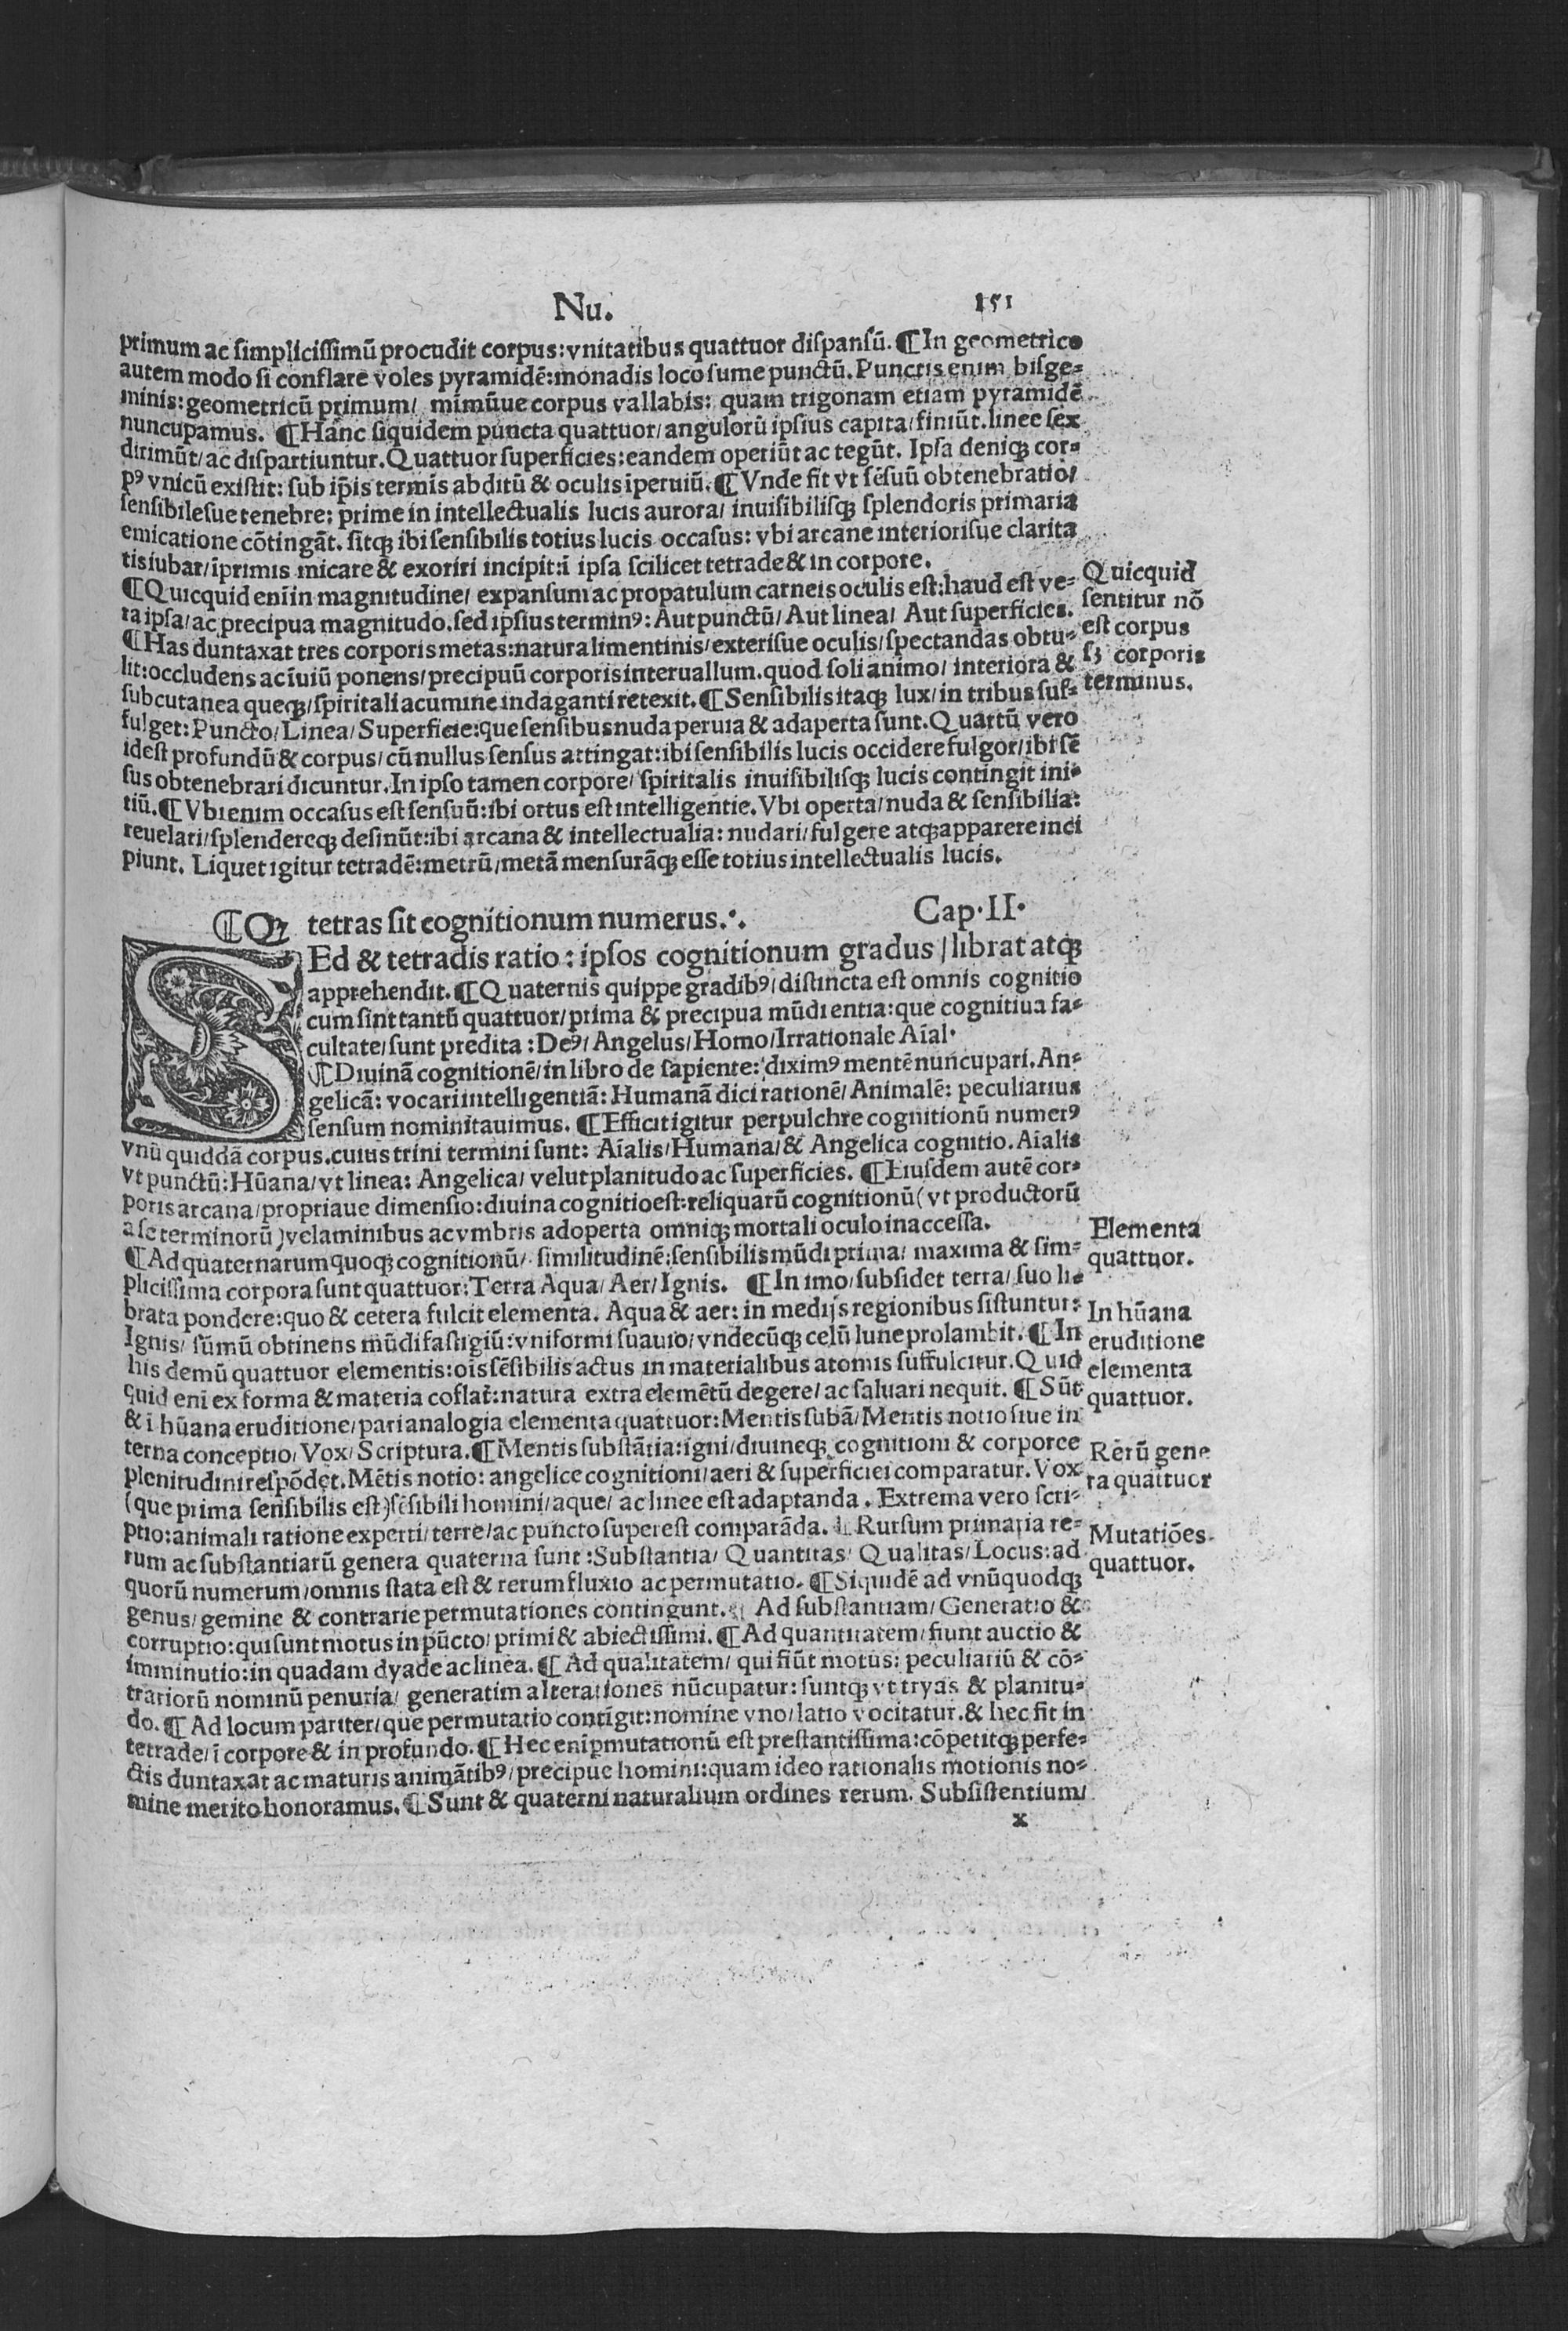 Nu. 151
primum ac simplicissimũ procudit corpus:vnitatibus quattuor dispansũ.¶In geometrico
autem modo si conflare voles pyramidẽ:monadis loco sume punctũ.Punctis enim bisge-
minis:geometricũ primum/ mimũue corpus vallabis: quam trigonam etiam pyramidẽ
nuncupamus. ¶Hanc siquidem puncta quattuor/angulorũ ipsius capita/finiũt.linee sex
dirimũt/ac dispartiuntur.Quattuor superficies:eandem operiũt ac tegũt. Ipsa deniqꝫ cor-
pꝰ vnicũ existit: sub ip̃is termis abditũ & oculis ĩperuiũ.¶Vnde fit vt sẽsuũ obtenebratio/
sensibilesue tenebre: prime in intellectualis lucis aurora/ inuisibilisqꝫ splendoris primaria
emicatione cõtingãt. sitqꝫ ibi sensibilis totius lucis occasus: vbi arcane interiorisue clarita
tis iubar/ĩprimis micare & exoriri incipit:ĩ ipsa scilicet tetrade & in corpore.
¶Quicquid enĩ in magnitudine/ expansum ac propatulum carneis oculis est:haud est ve-
ra ipsa/ac precipua magnitudo.sed ipsius terminꝰ:Aut punctũ/Aut linea/ Aut superficies.
¶Has duntaxat tres corporis metas:natura limentinis/exterisue oculis/spectandas obtu-
lit:occludens ac ĩuiũ ponens/precipuũ corporis interuallum.quod soli animo/ interiora &
subcutanea queqꝫ/spiritali acumine indaganti retexit.¶Sensibilis itaqꝫ lux/in tribus suf-
fulget:Puncto/Linea/Superficie:que sensibus nuda peruia & adaperta sunt.Quartũ vero
idest profundũ & corpus/cũ nullus sensus attingat:ibi sensibilis lucis occidere fulgor/ibi sẽ
sus obtenebrari dicuntur.In ipso tamen corpore/ spiritalis inuisibilisqꝫ lucis contingit ini-
tiũ.¶Vbi enim occasus est sensuũ:ibi ortus est intelligentie.Vbi operta/nuda & sensibilia:
reuelari/splendereqꝫ desinũt:ibi arcana & intellectualia: nudari/fulgere atqꝫ apparere inci
piunt. Liquet igitur tetradẽ:metrũ/metã mensurãqꝫ esse totius intellectualis lucis.
Quicquid
sentitur nõ
est corpus
sꝫ corporis
terminus.
¶Qꝫ tetras sit cognitionum numerus.·. Cap·II·
SEd & tetradis ratio:ipsos cognitionum gradus/librat atqꝫ
apprehendit.¶Quaternis quippe gradibꝰ/distincta est omnis cognitio
cum sint tantũ quattuor/prima & precipua mũdi entia:que cognitiua fa-
cultate/sunt predita:Deꝰ/Angelus/Homo/Irrationale Aĩal·
¶Diuinã cognitionẽ/in libro de sapiente: diximꝰ mentẽ nuncupari.An-
gelicã: vocari intelligentiã: Humanã dici rationẽ/Animalẽ: peculiarius
sensum nominitauimus. ¶Efficit igitur perpulchre cognitionũ numerꝰ
vnũ quiddã corpus.cuius trini termini sunt: Aĩalis/Humana/& Angelica cognitio.Aĩalis
vt punctũ:Hũana/vt linea: Angelica/velut planitudo ac superficies. ¶Eiusdem autẽ cor-
poris arcana/propriaue dimensio:diuina cognitio est:reliquarũ cognitionũ(vt productorũ
a se terminorũ)velaminibus ac vmbris adoperta omniqꝫ mortali oculo inaccessa.
¶Ad quaternarum quoqꝫ cognitionũ/ similitudinẽ:sensibilis mũdi prima/ maxima & sim-
plicissima corpora sunt quattuor:Terra Aqua/Aer/Ignis. ¶In imo/subsidet terra/suo li-
brata pondere:quo & cetera fulcit elementa. Aqua & aer: in medijs regionibus sistuntur:
Ignis/ sũmũ obtinens mũdi fastigiũ:vniformi suauio/vndecũqꝫ celũ lune prolambit.¶In
his demũ quattuor elementis:oĩs sẽsibilis actus in materialibus atomis suffulcitur.Quid
quid enĩ ex forma & materia coflat̃:natura extra elemẽtũ degere/ac saluari nequit. ¶Sũt
& ĩ hũana eruditione/pari analogia elementa quattuor:Mentis subã/Mentis notio siue in
terna conceptio/Vox/Scriptura.¶Mentis substãtia:igni/diuineqꝫ cognitioni & corporee
plenitudini respõdet.Mẽtis notio: angelice cognitioni/aeri & superficiei comparatur.Vox
(que prima sensibilis est)sẽsibili homini/aque/ ac linee est adaptanda. Extrema vero scri-
ptio:animali ratione experti/terre/ac puncto superest comparãda. ¶Rursum primaria re-
rum ac substantiarũ genera quaterna sunt:Substantia/Quantitas/Qualitas/Locus:ad
quorũ numerum/omnis stata est & rerum fluxio ac permutatio. ¶Siquidẽ ad vnũquodqꝫ
genus/gemine & contrarie permutationes contingunt.¶ Ad substantiam/Generatio &
corruptio:qui sunt motus in pũcto/primi & abiectissimi.¶Ad quantitatem/fiunt auctio &
imminutio:in quadam dyade ac linea.¶Ad qualitatem/ qui fiũt motus: peculiariũ & cõ-
trariorũ nominũ penuria/ generatim alterationes nũcupatur:suntqꝫ vt tryas & planitu-
do.¶Ad locum pariter/que permutatio contĩgit:nomine vno/latio vocitatur.& hec fit in
tetrade/ĩ corpore & in profundo.¶Hec enĩ ꝑmutationũ est prestantissima:cõpetitqꝫ perfe-
ctis duntaxat ac maturis animãtibꝰ/precipue homini:quam ideo rationalis motionis no-
mine merito honoramus.¶Sunt & quaterni naturalium ordines rerum. Subsistentium/
x
Elementa
quattuor.
In hũana
eruditione
elementa
quattuor.
Rerũ gene
ra quattuor
Mutatiões
quattuor.